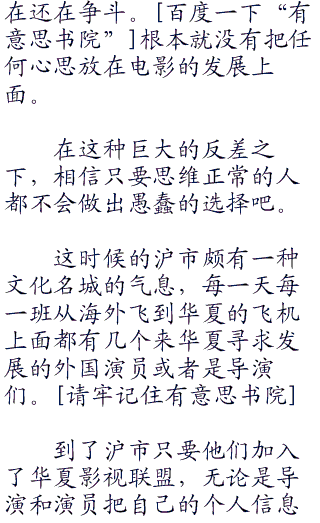 在还在争斗。[百度一下“有
意思书院”]根本就没有把任
何心思放在电影的发展上
面。
在这种巨大的反差之
下，相信只要思维正常的人
都不会做出愚蠢的选择吧。
这时候的沪市颇有一种
文化名城的气息，每一天每
一班从海外飞到华夏的飞机
上面都有几个来华夏寻求发
展的外国演员或者是导演
们。[请牢记住有意思书院]
到了沪市只要他们加入
了华夏影视联盟，无论是导
演和演员把自己的个人信息